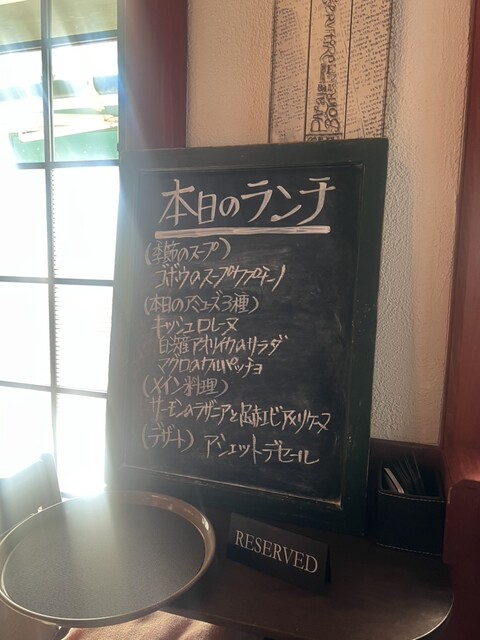 本日のランチ
(季節のスープ)
ゴボウのスープカプチーノ
(本日のアミューズ3種)
キッシュロレーヌ
アオリイカのサラダ
マグロのカルパッチョ
(メイン料理)
サーモンのラザニアと 海老アメリケーヌ
(デザート) アシェットデセール
RESERVED